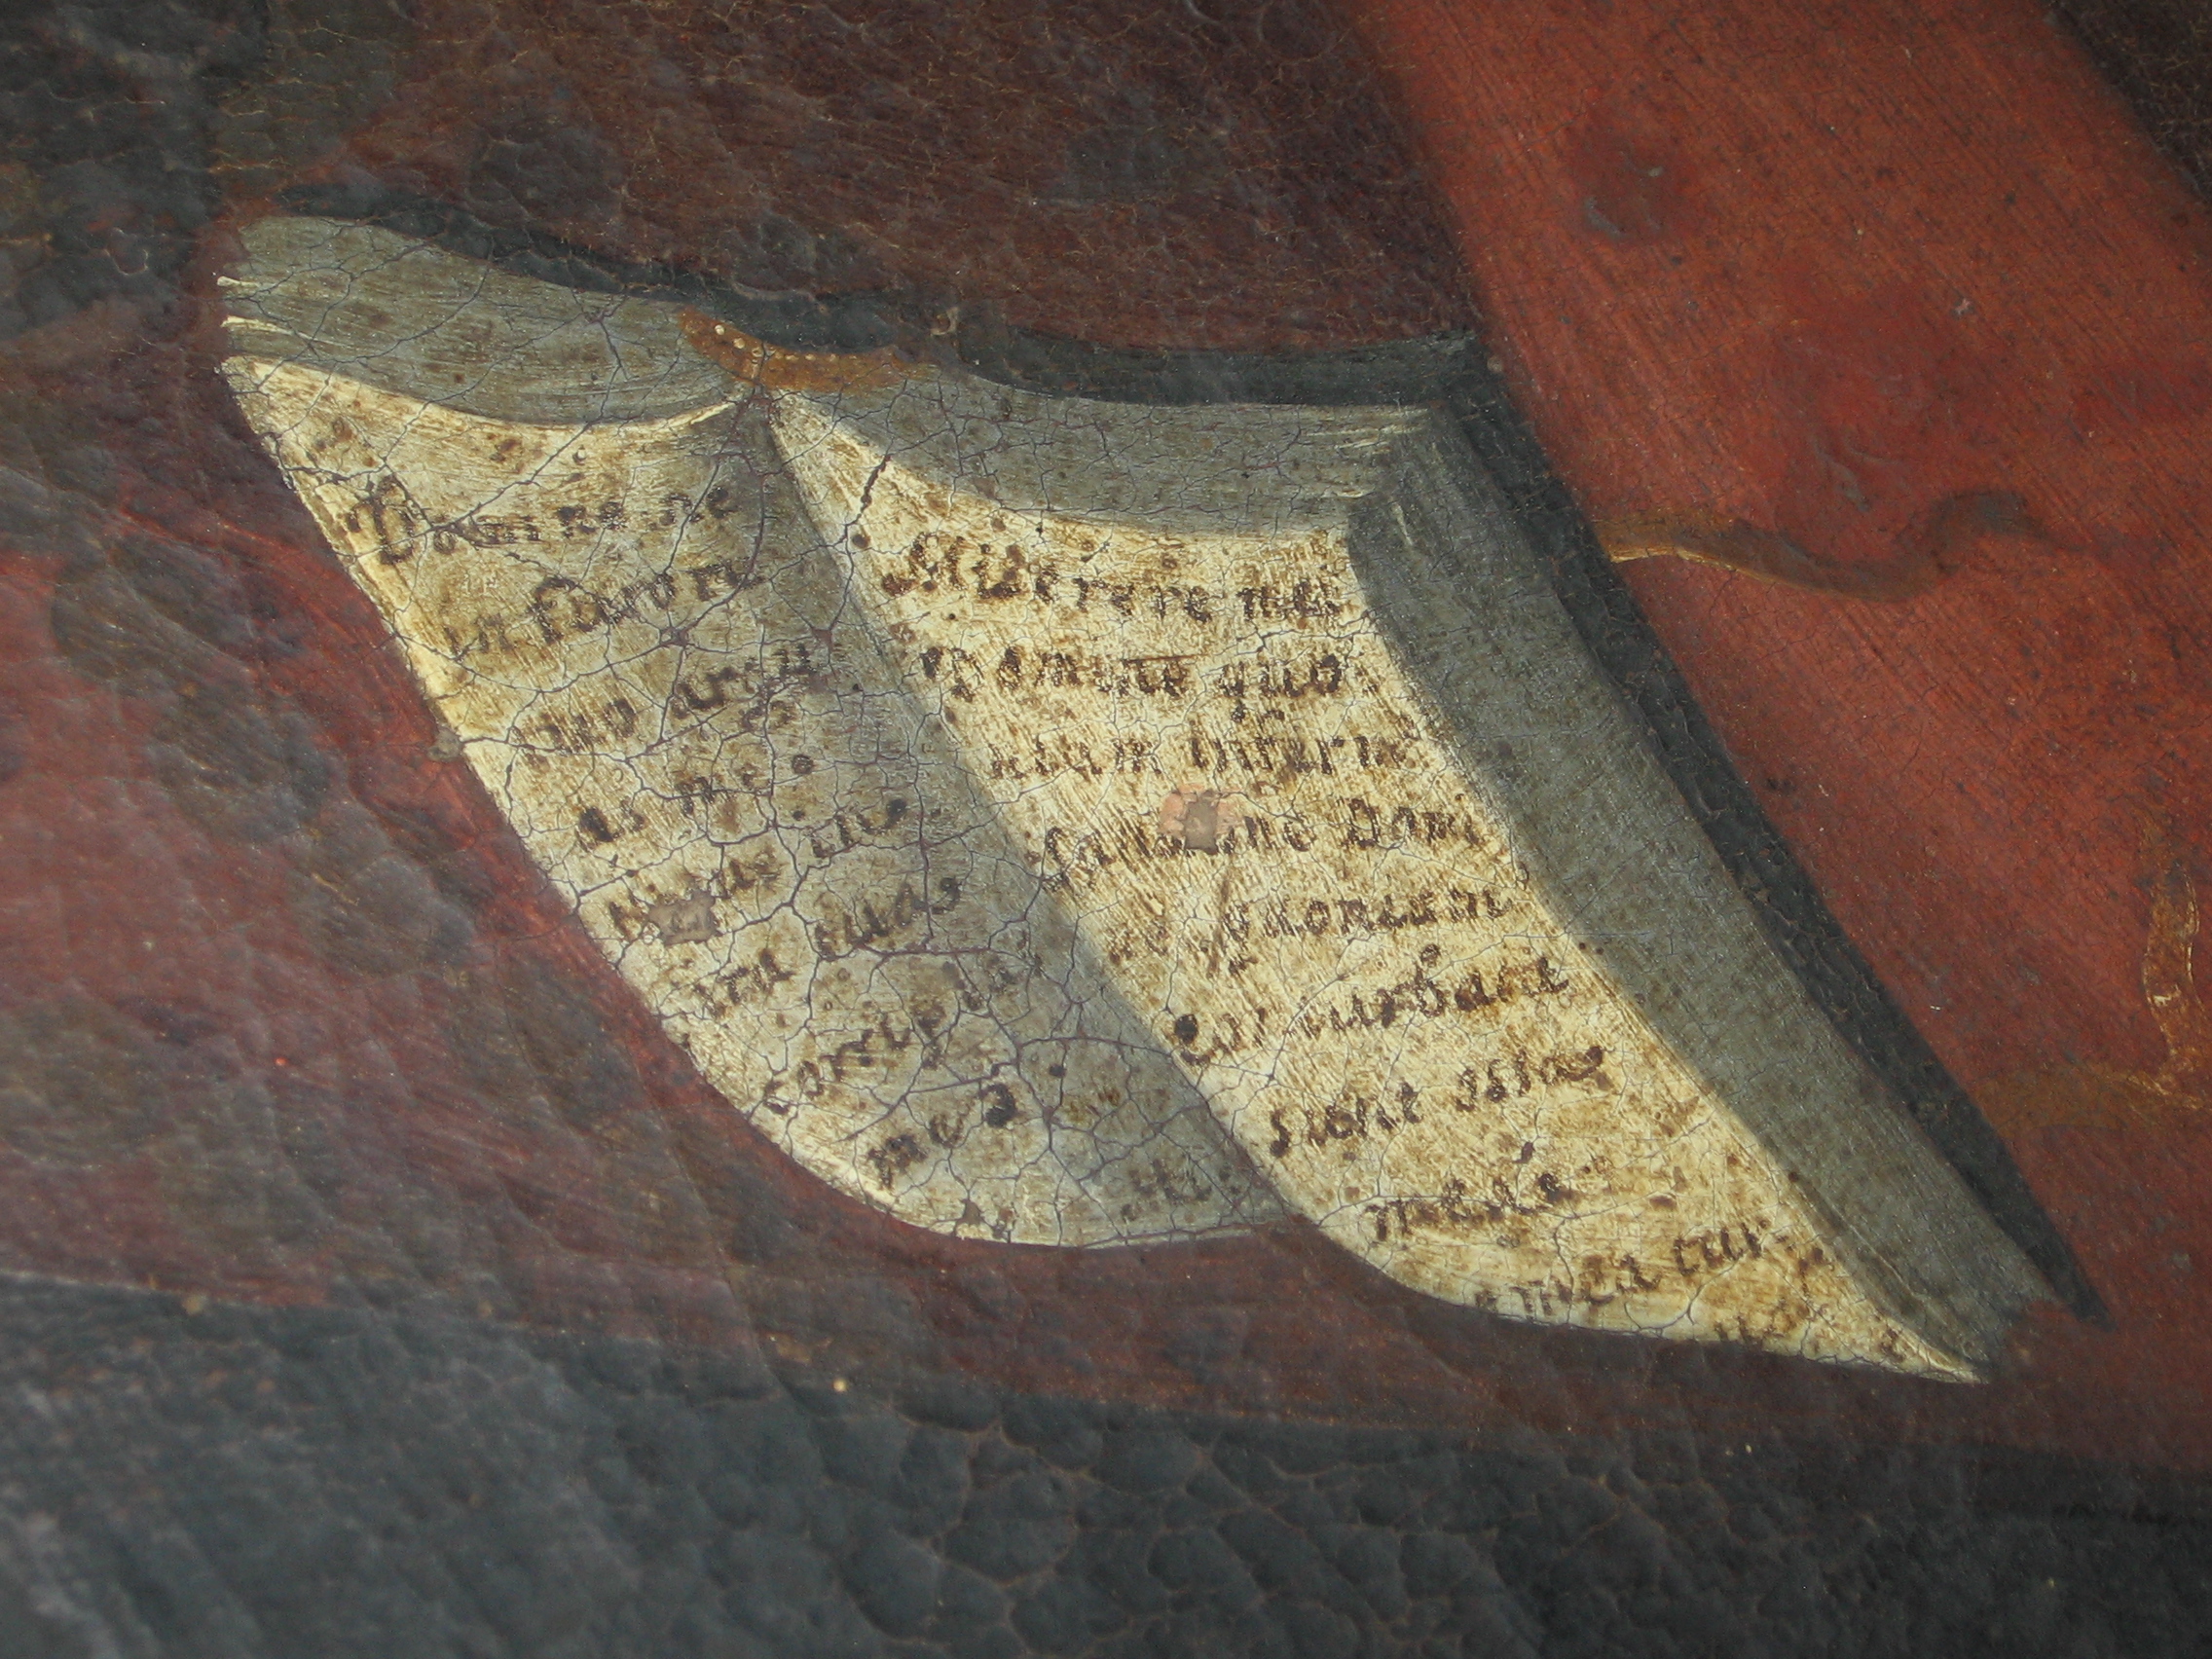 Domine ne
in furor
tuo argu
as me
neque in
ira tuas
corripia
me
Miserere mei
Domine quo
niam infirm
sana me Domi
ne quoniam
Con turbata
sunt ossa
mea tur